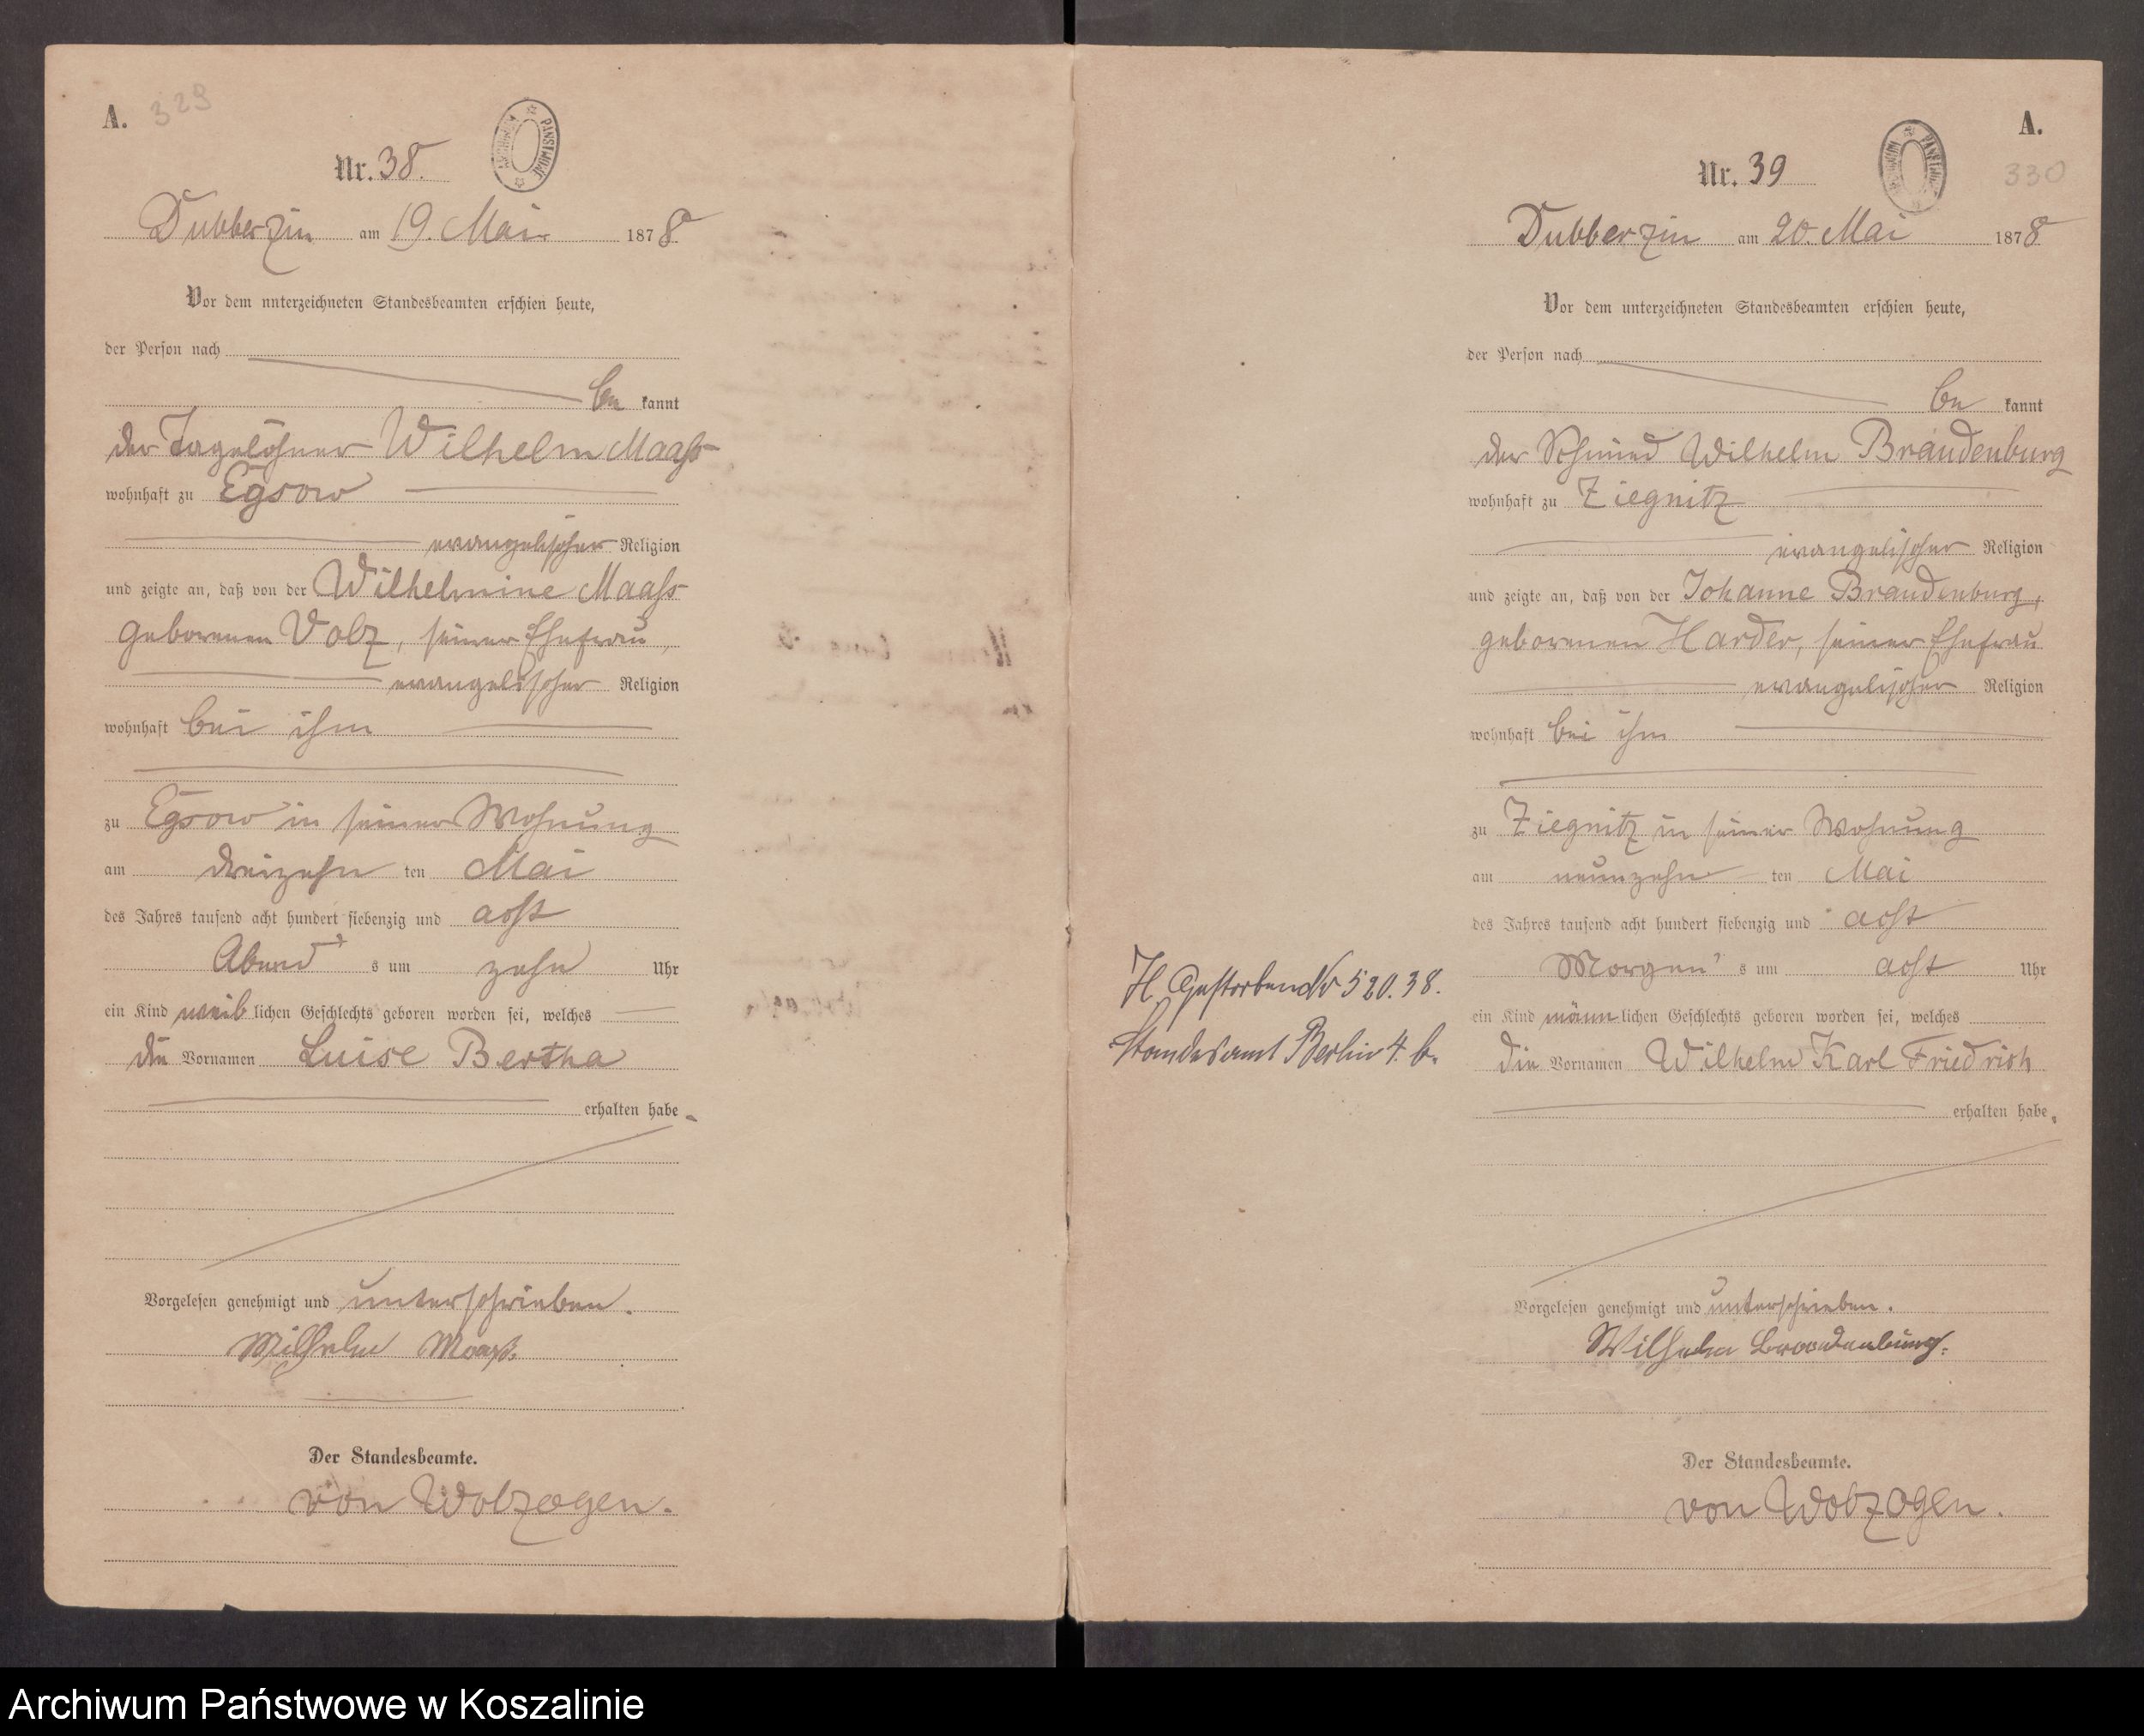 A. 329
Nr. 38.
Dubberzin am 19. Mai 1878
Vor dem unterzeichneten Standesbeamten erschien heute,
der Person nach
be kannt
der Tagelöhner Wilhelm Maaß
wohnhaft zu Egsow
evangelischer Religion
und zeigte an, daß von der Wilhelmine Maaß
geborenen Volz, seiner Ehefrau,
evangelischer Religion
wohnhaft bei ihm
zu Egsow in seiner Wohnung
am dreizehn ten Mai
des Jahres tausend acht hundert siebenzig und acht
Abend s um zehn Uhr
ein Kind weib lichen Geschlechts geboren worden sei, welches
die Vornamen Luise Bertha
erhalten habe.
Vorgelesen genehmigt und unterschrieben.
Wilhelm Maaß
Der Standesbeamte.
von Wolzogen.
A.
330
Nr. 39
Dubberzin am 20. Mai 1878
Vor dem unterzeichneten Standesbeamten erschien heute,
der Person nach
be kannt
der Schmied Wilhelm Brandenburg
wohnhaft zu Ziegnitz
evangelischer Religion
und zeigte an, daß von der Johanne Brandenburg,
geborenen Harder, seiner Ehefrau
evangelischer Religion
wohnhaft bei ihm
zu Ziegnitz in seiner Wohnung
am neunzehn ten Mai
des Jahres tausend acht hundert siebenzig und acht
Morgen s um acht Uhr
ein Kind männ lichen Geschlechts geboren worden sei, welches
die Vornamen Wilhelm Karl Friedrich
erhalten habe.
H. Gestorben Nr 520.38.
Standesamt Berlin 4. b.
Vorgelesen genehmigt und unterschrieben.
Wilhelm Brandenburg.
Der Standesbeamte.
von Wolzogen.
Archiwum Państwowe w Koszalinie